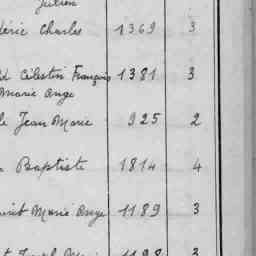 Julien
déric Charles 1369 3
Célestin François 1381 3
Marie Ange
le Jean Marie 925 2
Baptiste 1814 4
Marie Ange 1189 3
1198 3